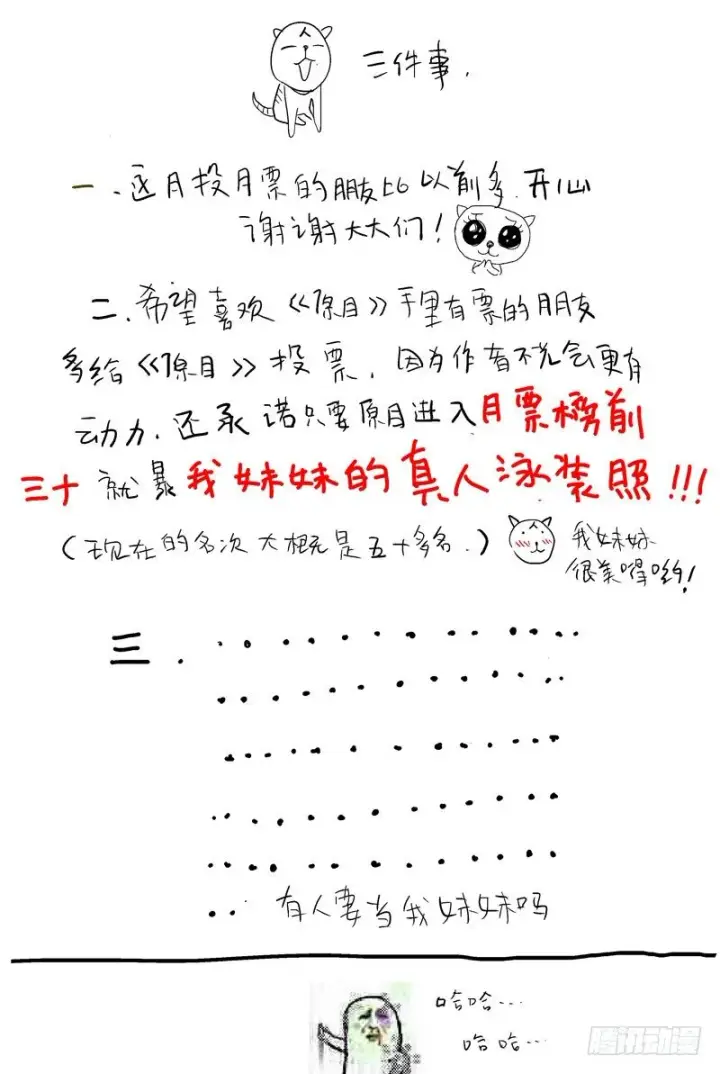 三件事.
一、这月投月票的朋友比以前多.开心
谢谢大大们!
二、希望喜欢《原目》手里有票的朋友
多给《原目》投票,因为作者不光会更有
动力,还承诺只要原目进入月票榜前
三十就暴我妹妹的真人泳装照!!!
(现在的名次大概是五十多名.)
我妹妹
很美嘚哟!
三.
有人要当我妹妹吗
哈哈...
哈哈...
腾讯动漫